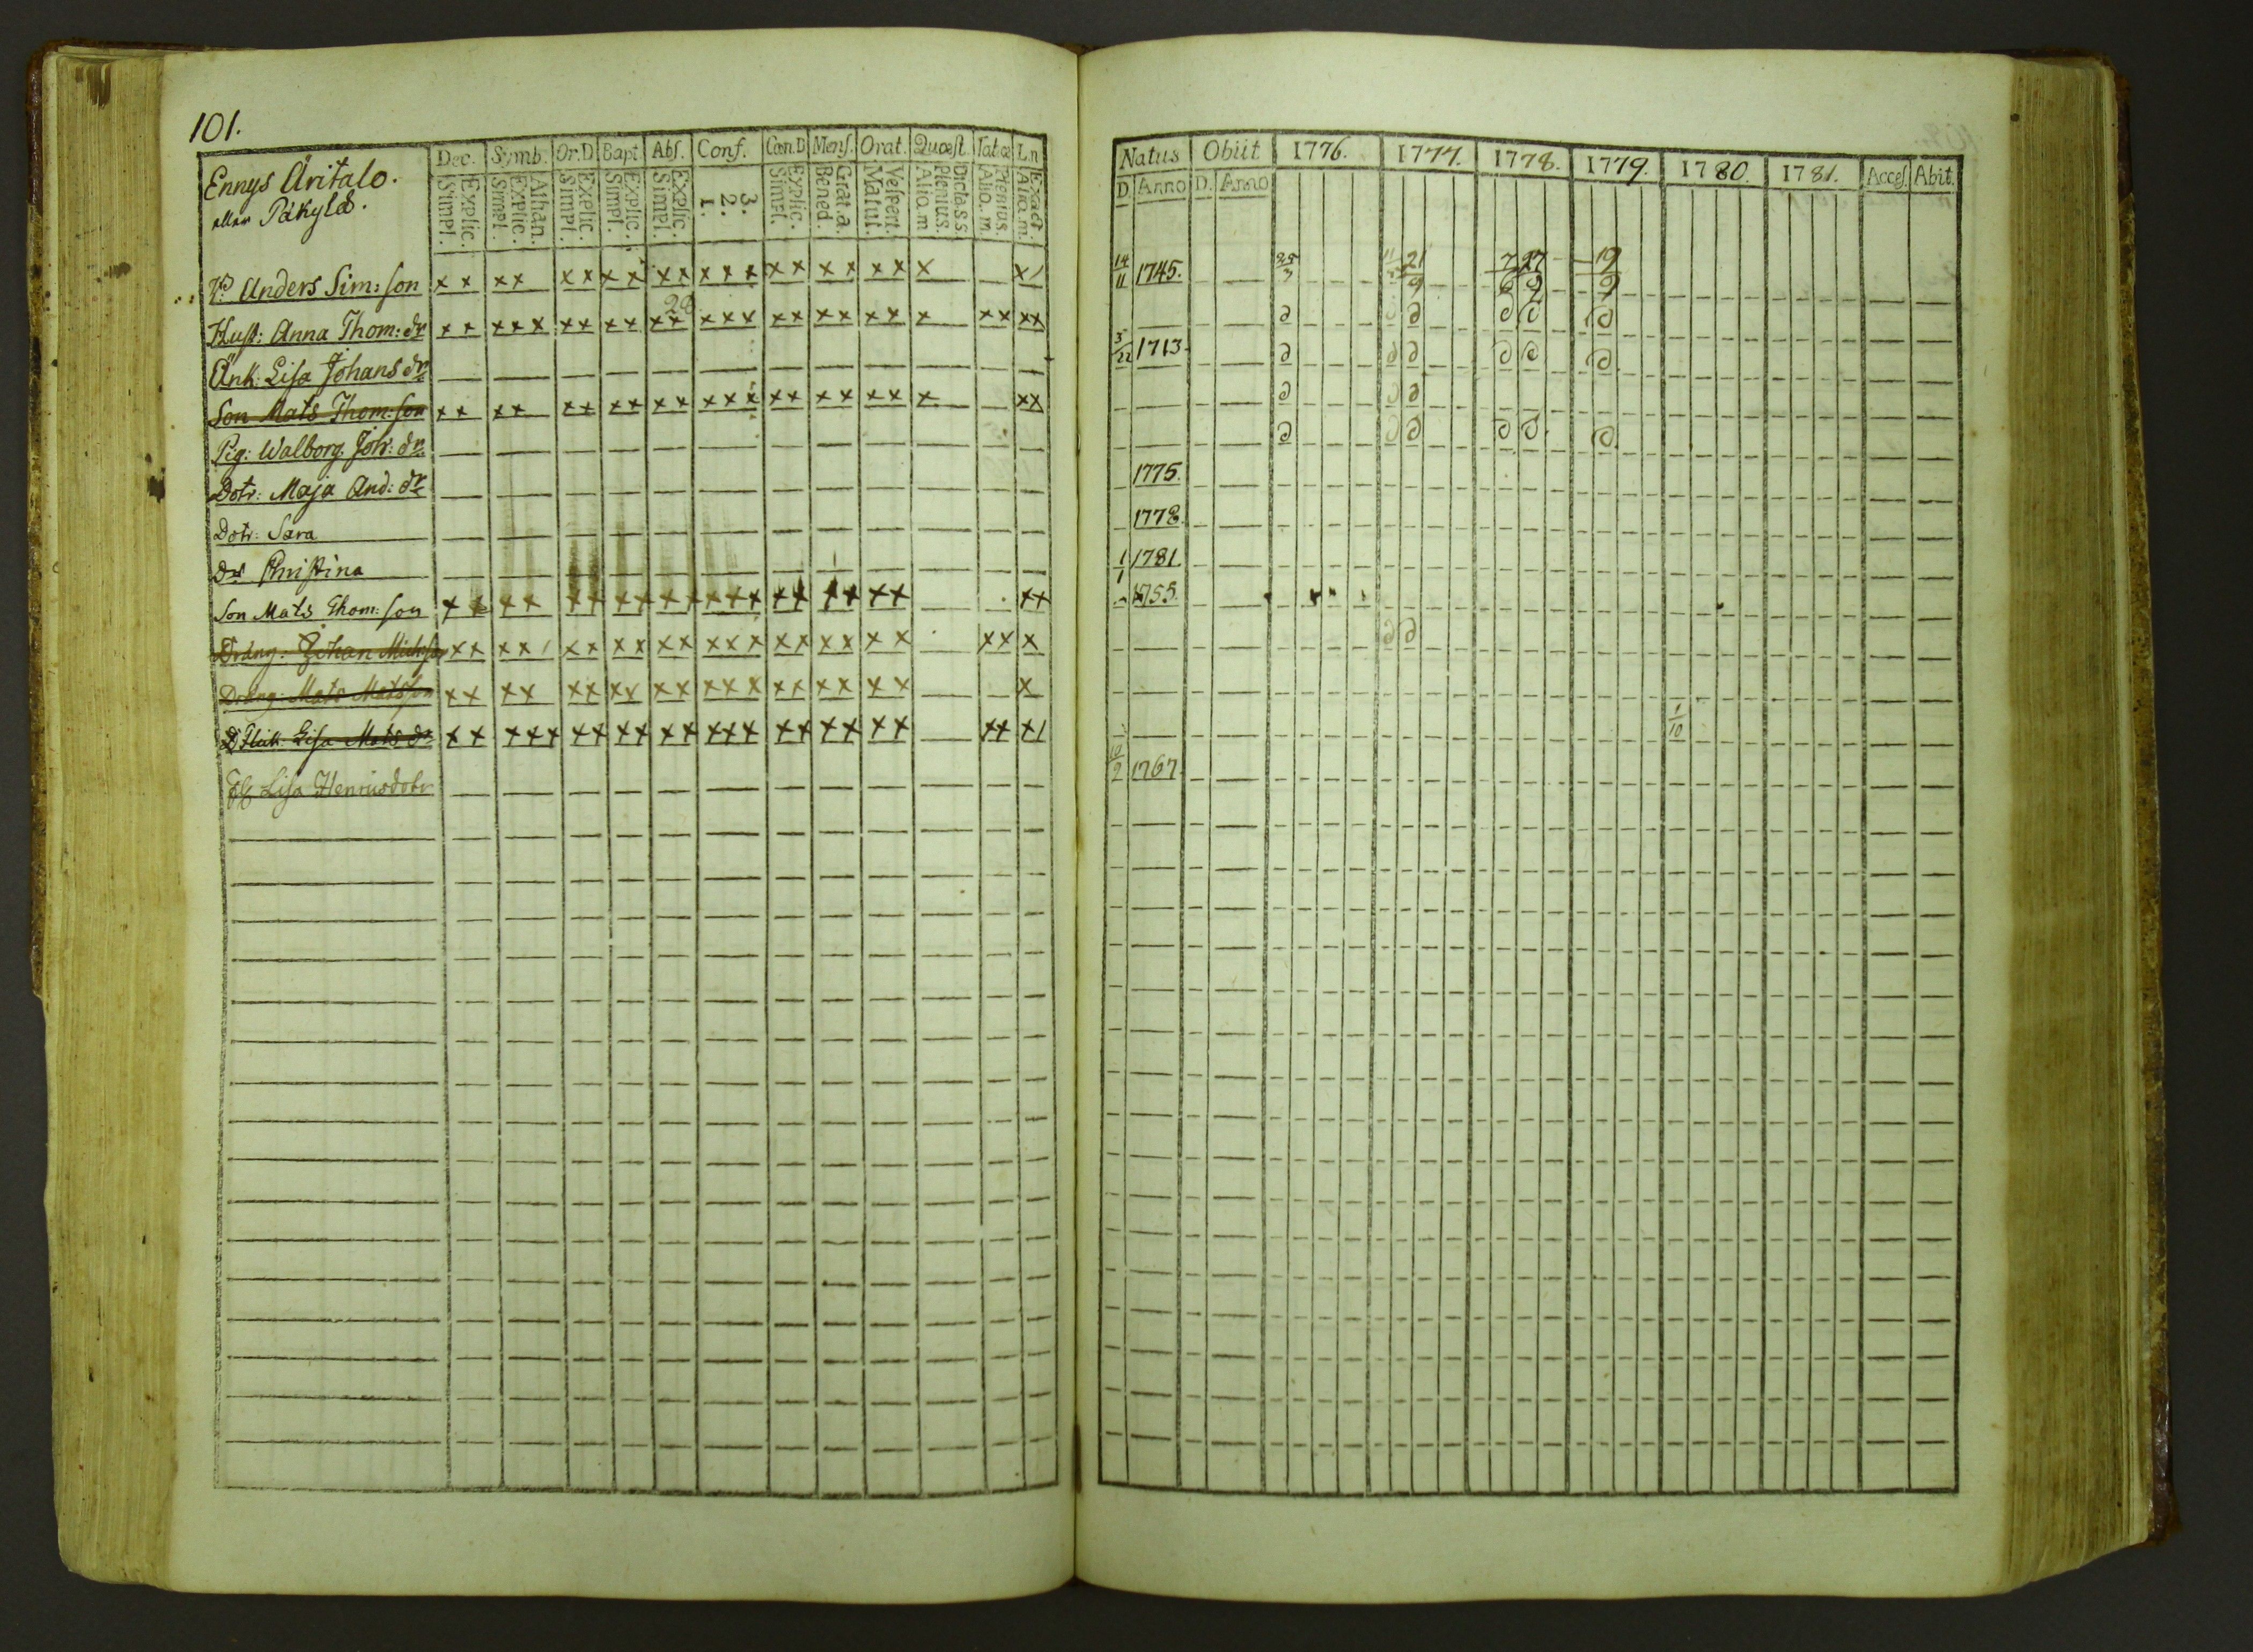 101.
Ennys Äritalo.
eller Päkylä.
Dec. Symb. Or.D Bapt. Abs. Conf. Cœn.D Mens. Orat. Quæst. Tab.œ L.n
Explic. Simpl. Athan. Explic. Simpl. Explic. Simpl. Explic. Simpl. Explic. Simpl. 3. 2. 1. Explic. Simpl. Grat. a. Bened. Vespert. Matut. Dicta.s.s. Plenius. Aliq.m Plenius. Aliq.m. Exact. Aliq.m.
Natus Obiit 1776. 1777. 1778. 1779. 1780. 1781. Acces. Abit.
D. Anno D. Anno
Anders Sim: son x x x x x x x x x x x x x x x x x x x x x 14/11 1745. 25/3 21/9 7/6 27/9 19/9
28
Hust: Anna Thom: dr x x x x x x x x x x x x x x x x x x x x x x x x x
Änk: Lisa Johans dr 3/22 1713.
Son Mats Thom: son x x x x x x x x x x x x x x x x x x x x x x
Pig: Walborg Joh: dr
Dotr: Maja And: dr 1775.
Dotr: Sara 1778.
Dr Christina 1/1 1781.
Son Mats Thom: son x x x x x x x x x x x x x x x x x x x x x 1755.
Dräng: Johan Mich: son x x x x x x x x x x x x x x x x x x x x x x
Dräng: Mats Matsson x x x x x x x x x x x x x x x x x x x x
Lisa Mats dr x x x x x x x x x x x x x x x x x x x x x x x 1/10
Lisa Henricsdotr 10/9 1767.